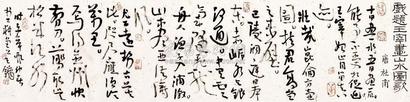 戲題王宰畫山水圖歌
唐杜甫
十日畫一水五日畫一石
能事不受相促迫
王宰始肯留真迹
壯哉崑崙方壺
圖掛君高堂之
素壁巴陵洞庭日
本東赤岸水與銀
河通中有雲
氣隨飛龍
舟人漁子入浦漵
山木盡亞洪濤
風尤工遠勢古莫
比咫尺應須論
萬里焉得并州快
剪刀剪取吳松
半江水